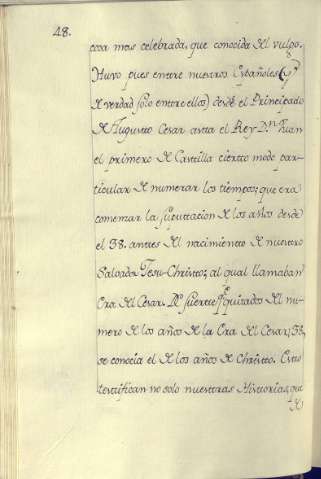 48.
cosa mas celebrada, que conocida del vulgo.
Huvo pues entre nuestros Españoles (y
de verdad solo entre ellos) desde el Principado
de Augusto Cesar asta el Rey Dn. Juan
el primero de Castilla cierto modo par-
ticular de numerar los tiempos, que era
comenzar la suputtacion de los años desde
el 38. antes del nacimiento de nuestro
Salvador Jesu-Christo; al qual llamaban
Era del Cesar. De suerte q.e quitados del nu-
mero de los años de la Era del Cesar, 38,
se conocia el de los años de Christo. Esto
testifican no solo nuestras Historias, que